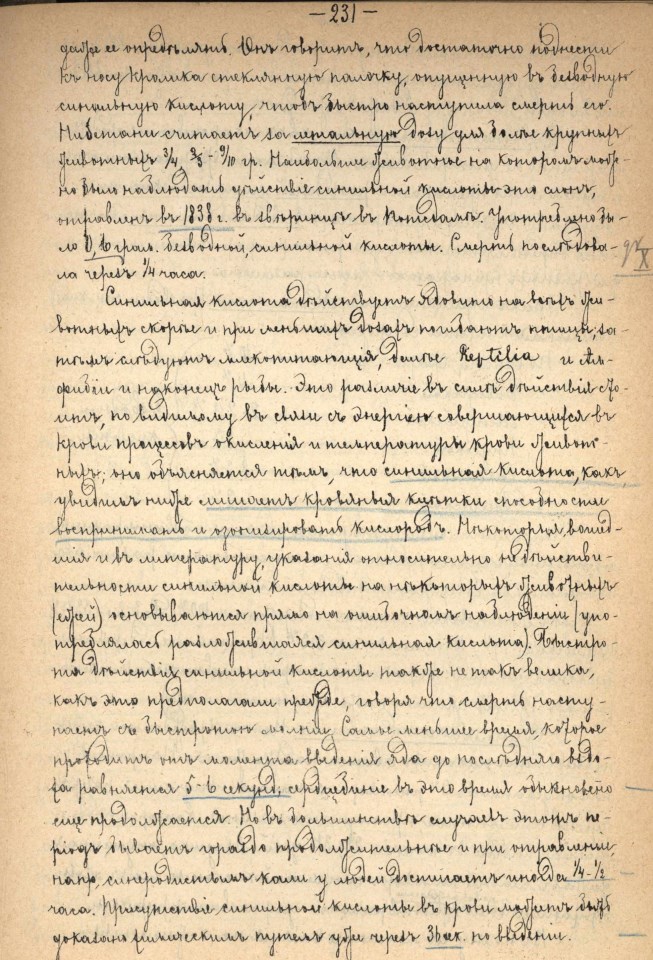 — 231 —
даже ее опредѣлять. Онъ говоритъ, что достаточно поднести
къ носу кролика стеклянную палочку, опущенную въ безводную
синильную кислоту, чтобъ быстро наступила смерть его.
считаетъ за летальную дозу для болѣе крупныхъ
животныхъ 3/4 - 9/10 гр. Наибольшее животное на которомъ мож-
но было наблюдать дѣйствіе синильной кислоты это слонъ,
отравленъ въ 1838 г. въ звѣринцѣ въ Потсдамѣ. Употреблено бы-
ло грам. безводной, синильной кислоты. Смерть послѣдова-
ла черезъ 1/4 часа.
Синильная кислота дѣйствуетъ ядовито на всѣхъ жи-
вотныхъ скорѣе и при меньшихъ дозахъ погибаютъ птицы, за-
тѣмъ слѣдуютъ млекопитающія, далѣе Reptilia и Ам-
фибіи и наконецъ рыбы. Это различіе въ силѣ дѣйствія сто-
итъ, по видимому въ связи съ энергіею совершающихся въ
крови процессовъ окисленія и температуры крови живот-
ныхъ; оно объясняется тѣмъ, что синильная кислота, какъ
увидимъ ниже лишаетъ кровяныя клѣтки способности
воспринимать и озонизировать кислородъ. Нѣкоторыя, вошед-
шія и въ литературу, указанія относительно недѣйстви-
тельности синильной кислоты на нѣкоторыхъ животныхъ
(ежей) основываются прямо на ошибочномъ наблюденіи (упо-
треблялась разложившаяся синильная кислота). Быстро-
та дѣйствія синильной кислоты также не такъ велика,
какъ это предполагали прежде, говоря что смерть насту-
паетъ съ быстротою молніи. Самое меньшее время, которое
проходитъ отъ момента введенія яда до послѣдняго вздо-
ха равняется 5-6 секунд; сердцебіеніе въ это время обыкновено
еще продолжается. Но въ большинствѣ случаевъ этотъ пе-
ріодъ бываетъ гораздо продолжительнѣе и при отравленіи,
напр. синеродистымъ кали у людей достигаетъ иногда 1/4-1/2
часа. Присутствіе синильной кислоты въ крови можетъ быть
доказано химическимъ путемъ уже черезъ 36 сек. по введеніи.